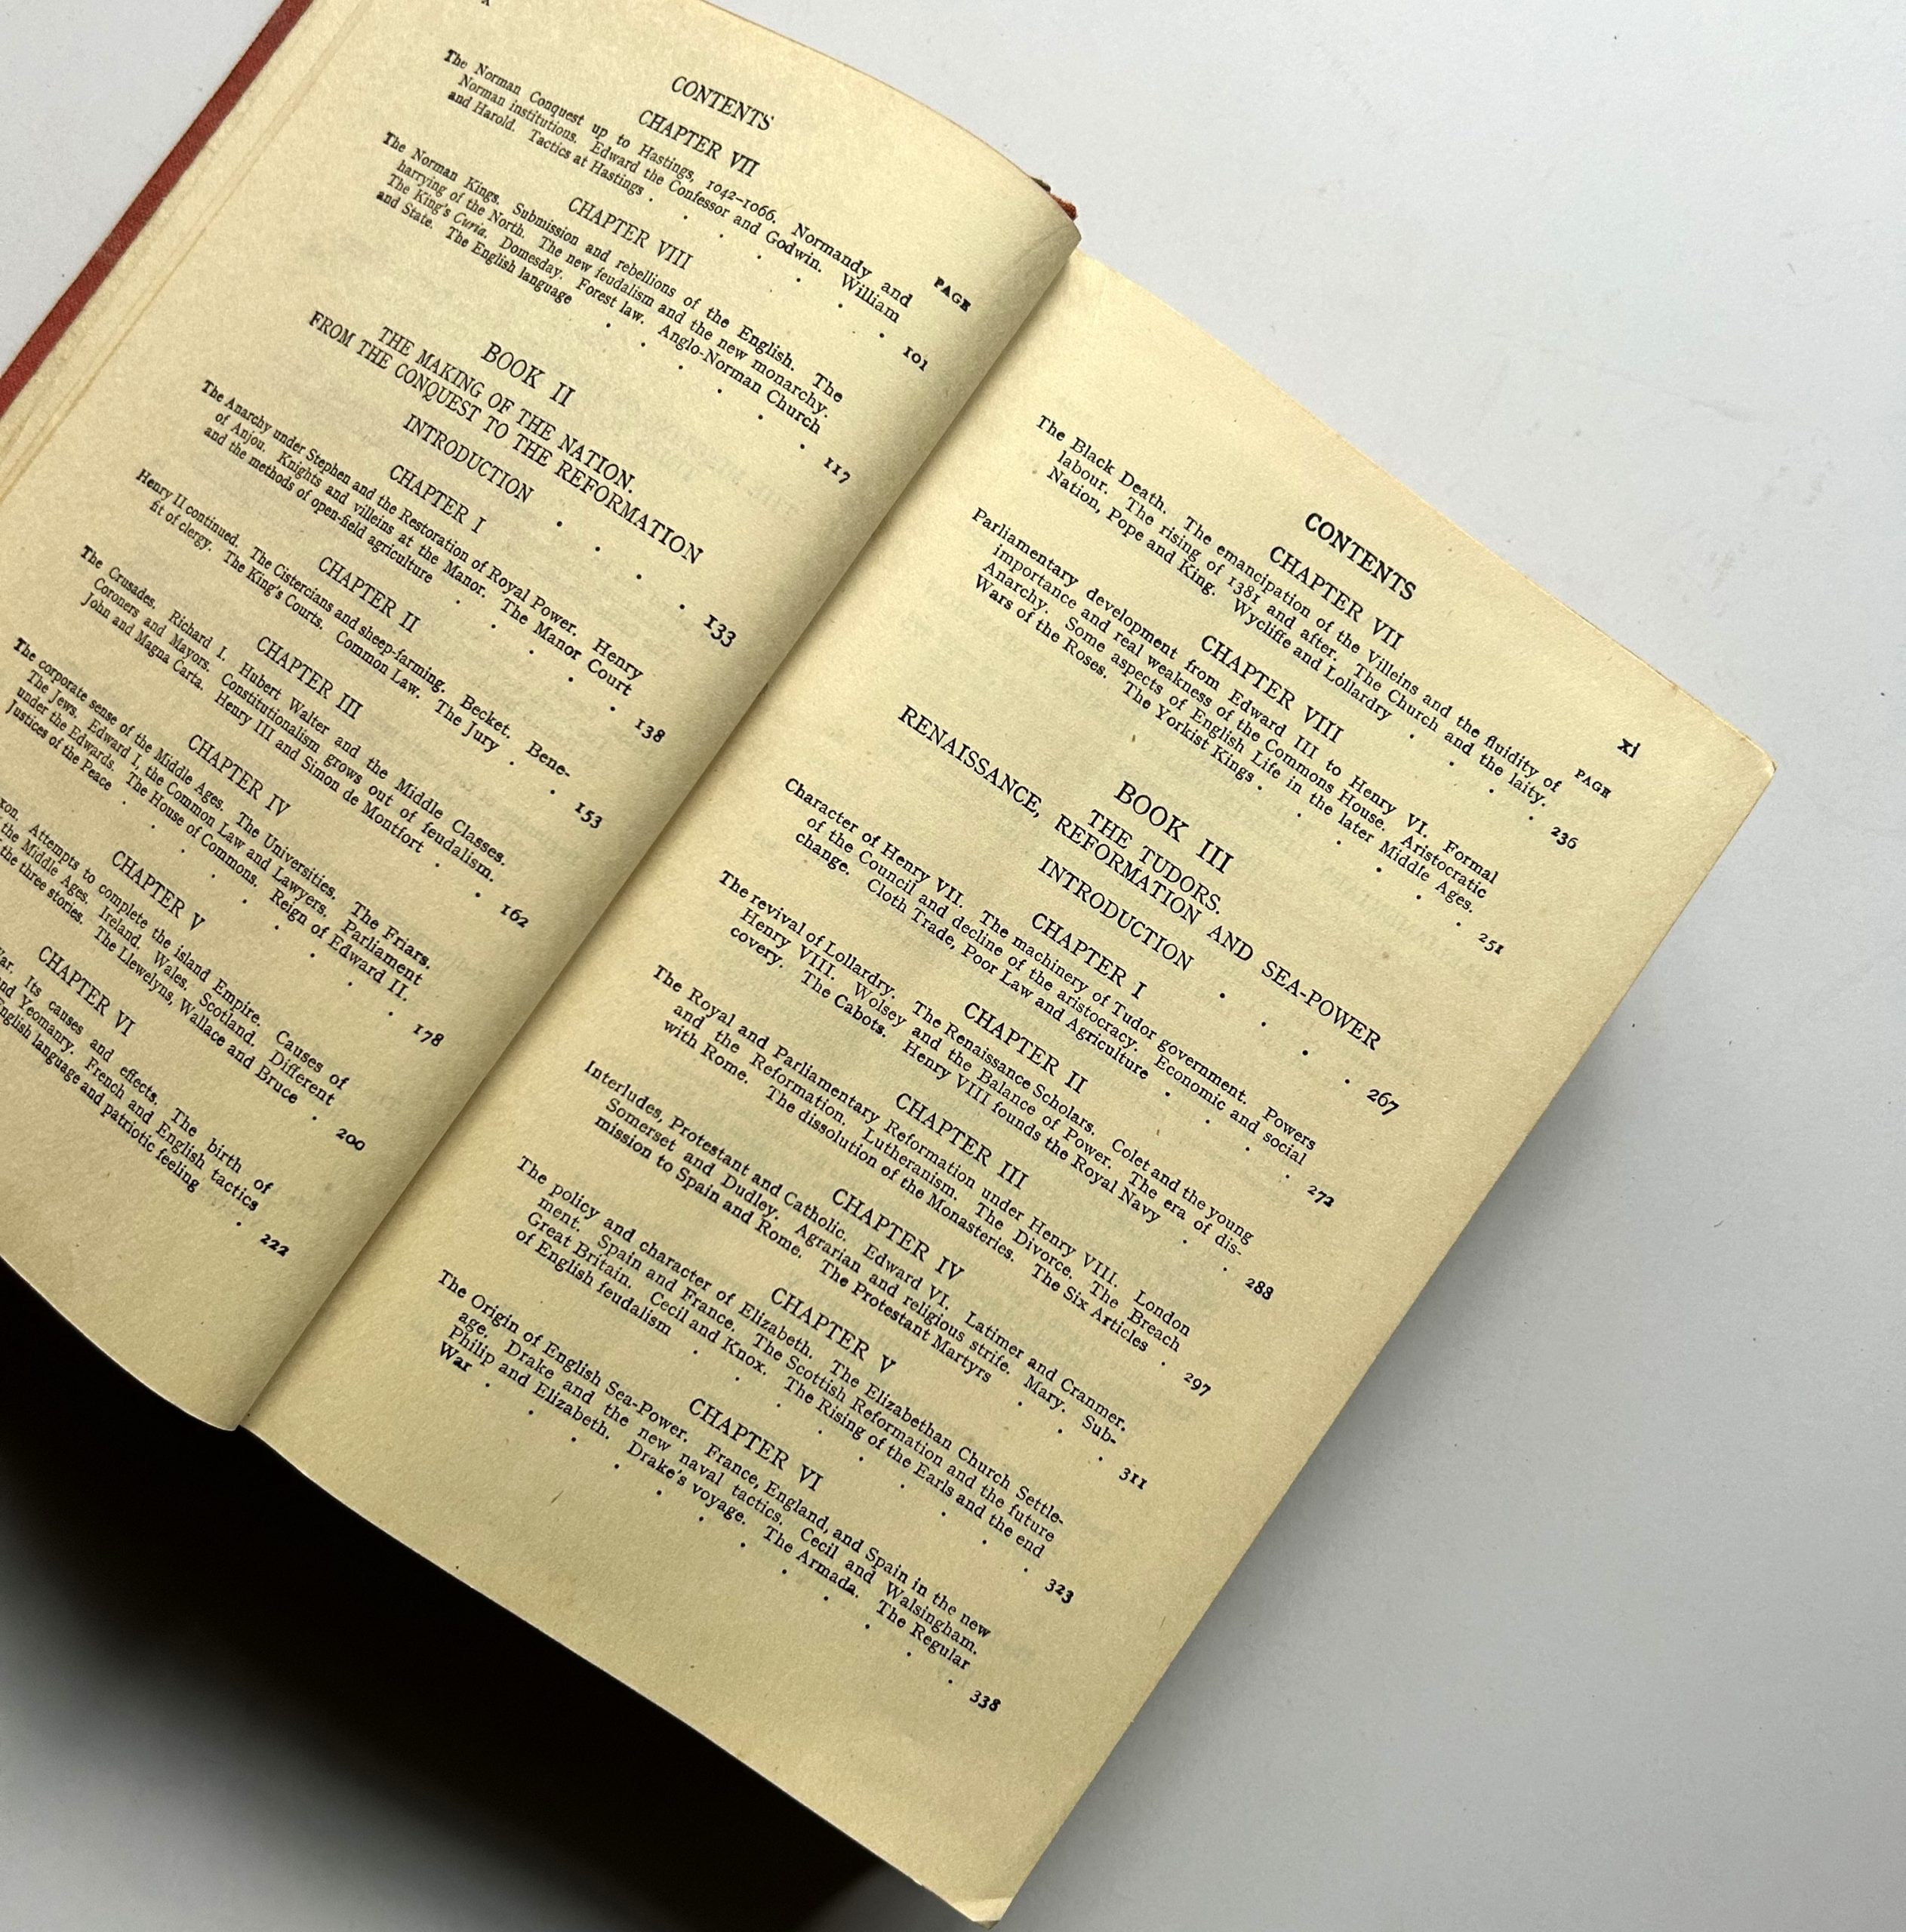 x
CONTENTS
PAGE
CHAPTER VII
The Norman Conquest up to Hastings, 1042-1066. Normandy and
Norman institutions. Edward the Confessor and Godwin. William
and Harold. Tactics at Hastings . . . . . . . 101
CHAPTER VIII
The Norman Kings. Submission and rebellions of the English. The
harrying of the North. The new feudalism and the new monarchy.
The King's Curia. Domesday. Forest law. Anglo-Norman Church
and State. The English language . . . . . . 117
BOOK II
THE MAKING OF THE NATION.
FROM THE CONQUEST TO THE REFORMATION
INTRODUCTION . . . . 133
CHAPTER I
The Anarchy under Stephen and the Restoration of Royal Power. Henry
of Anjou. Knights and villeins at the Manor. The Manor Court
and the methods of open-field agriculture . . . . . 138
CHAPTER II
Henry II continued. The Cistercians and sheep-farming. Becket. Bene-
fit of clergy. The King's Courts. Common Law. The Jury . . 153
CHAPTER III
The Crusades. Richard I. Hubert Walter and the Middle Classes.
Coroners and Mayors. Constitutionalism grows out of feudalism.
John and Magna Carta. Henry III and Simon de Montfort . . 162
CHAPTER IV
The corporate sense of the Middle Ages. The Universities. The Friars.
The Jews. Edward I, the Common Law and Lawyers. Parliament
under the Edwards. The House of Commons. Reign of Edward II.
Justices of the Peace . . . . . . . . . 178
CHAPTER V
xon. Attempts to complete the island Empire. Causes of
the Middle Ages. Ireland. Wales. Scotland. Different
the three stories. The Llewelyns, Wallace and Bruce . 200
CHAPTER VI
ar. Its causes and effects. The birth of
nd Yeomanry. French and English tactics
English language and patriotic feeling . 222
xi
CONTENTS
PAGE
CHAPTER VII
The Black Death. The emancipation of the Villeins and the fluidity of
labour. The rising of 1381 and after. The Church and the laity.
Nation, Pope and King. Wycliffe and Lollardry . . . . 236
CHAPTER VIII
Parliamentary development from Edward III to Henry VI. Formal
importance and real weakness of the Commons House. Aristocratic
Anarchy. Some aspects of English Life in the later Middle Ages.
Wars of the Roses. The Yorkist Kings . . . . . . 251
BOOK III
THE TUDORS.
RENAISSANCE, REFORMATION AND SEA-POWER
INTRODUCTION . . . . 267
CHAPTER I
Character of Henry VII. The machinery of Tudor government. Powers
of the Council and decline of the aristocracy. Economic and social
change. Cloth Trade, Poor Law and Agriculture . . . . 272
CHAPTER II
The revival of Lollardry. The Renaissance Scholars. Colet and the young
Henry VIII. Wolsey and the Balance of Power. The era of dis-
covery. The Cabots. Henry VIII founds the Royal Navy . . 288
CHAPTER III
The Royal and Parliamentary Reformation under Henry VIII. London
and the Reformation. Lutheranism. The Divorce. The Breach
with Rome. The dissolution of the Monasteries. The Six Articles . 297
CHAPTER IV
Interludes, Protestant and Catholic. Edward VI. Latimer and Cranmer.
Somerset and Dudley. Agrarian and religious strife. Mary. Sub-
mission to Spain and Rome. The Protestant Martyrs . . . 311
CHAPTER V
The policy and character of Elizabeth. The Elizabethan Church Settle-
ment. Spain and France. The Scottish Reformation and the future
Great Britain. Cecil and Knox. The Rising of the Earls and the end
of English feudalism . . . . . . . . . 323
CHAPTER VI
The Origin of English Sea-Power. France, England, and Spain in the new
age. Drake and the new naval tactics. Cecil and Walsingham.
Philip and Elizabeth. Drake's voyage. The Armada. The Regular
War . . . . . . . . . . . . 338